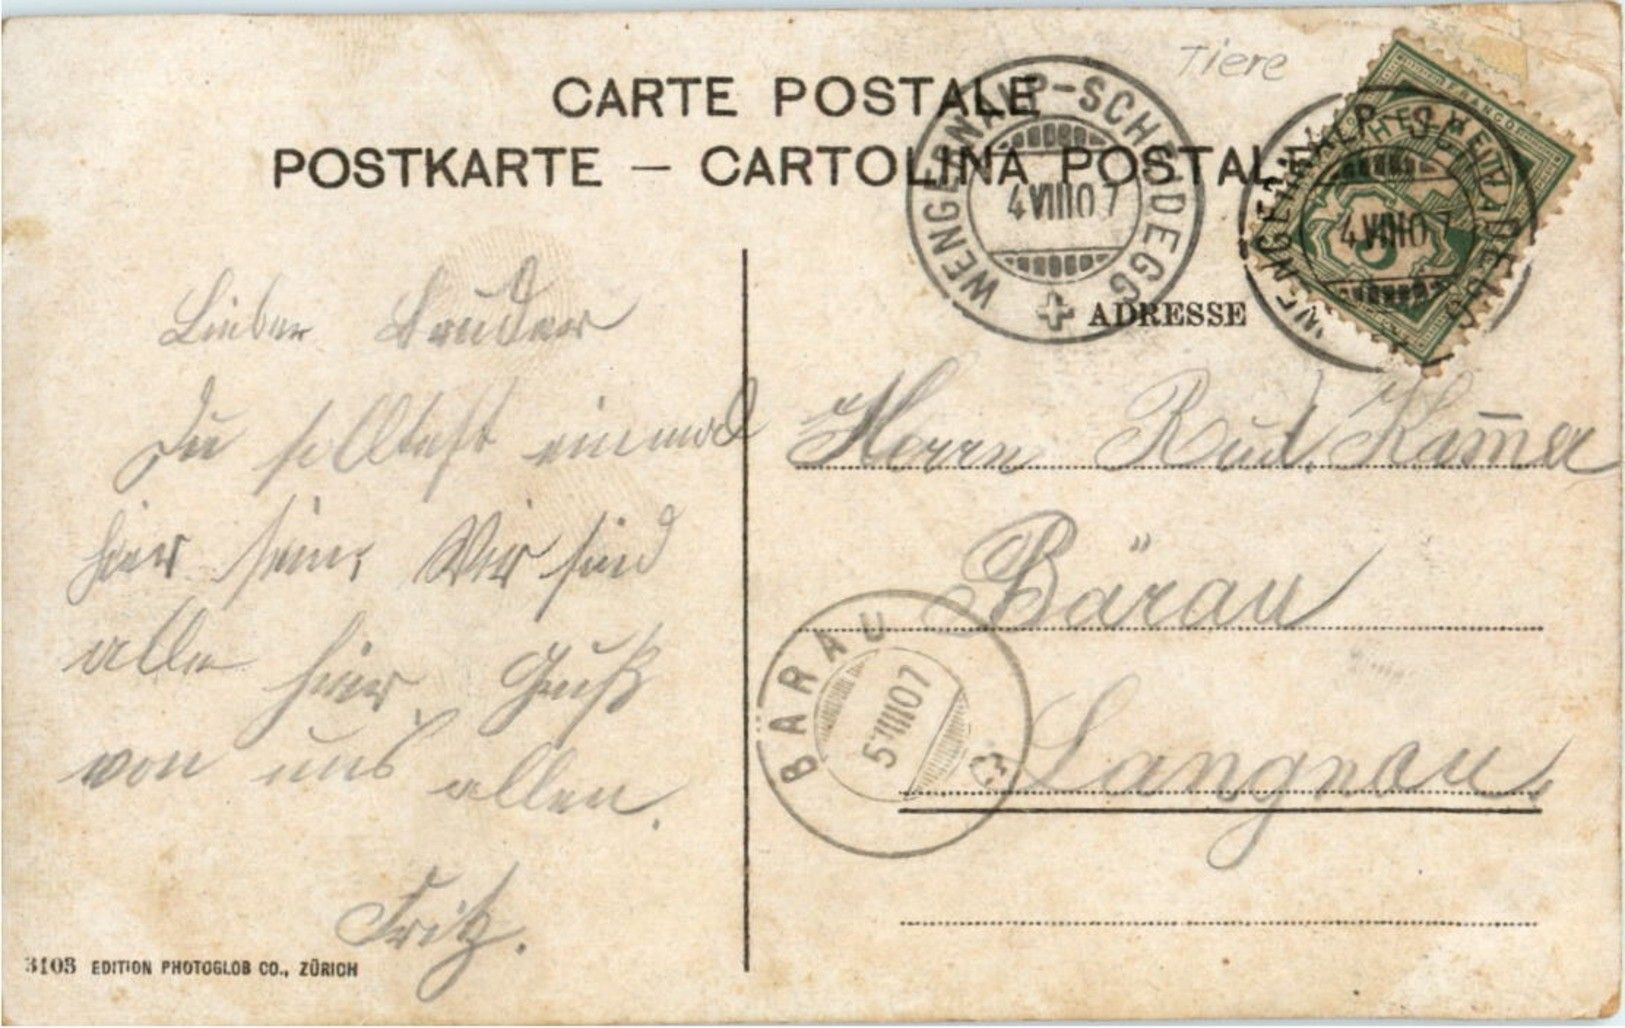 Tiere
CARTE POSTALE
POSTKARTE — CARTOLINA POSTALE
WENGERNALP-SCHEIDEGG
4 VIII 07
WENGERNALP-SCHEIDEGG
4 VIII 07
5
ADRESSE
Lieber Bruder
Du solltest einmal
hier sein. Wir sind
alle hier. Gruß
von uns allen.
Fritz.
Herrn Rud. Kam̄er
Bärau
Langnau.
BARAU
5 VIII 07
3103 EDITION PHOTOGLOB CO., ZÜRICH